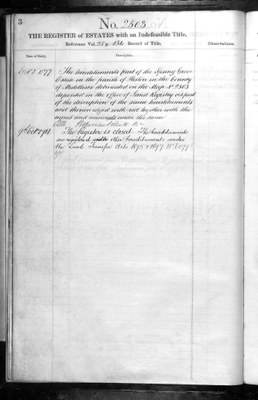 3
No. 2503
THE REGISTER of ESTATES with an Indefeasible Title.
Reference Vol. p. Record of Title.
Observations.
Date of Entry.
Description.
1877
The hereditaments part of the Spring Grove
Estate in the parish of Heston in the County
of Middlesex delineated on the Map No 2503
deposited in the office of Land Registry in part
of the description of the same hereditaments
and thereon edged with red together with the
mines and minerals under the same
The Register is closed. The hereditaments
are registered with other hereditaments under
the Land Transfer Acts 1875 & 1897